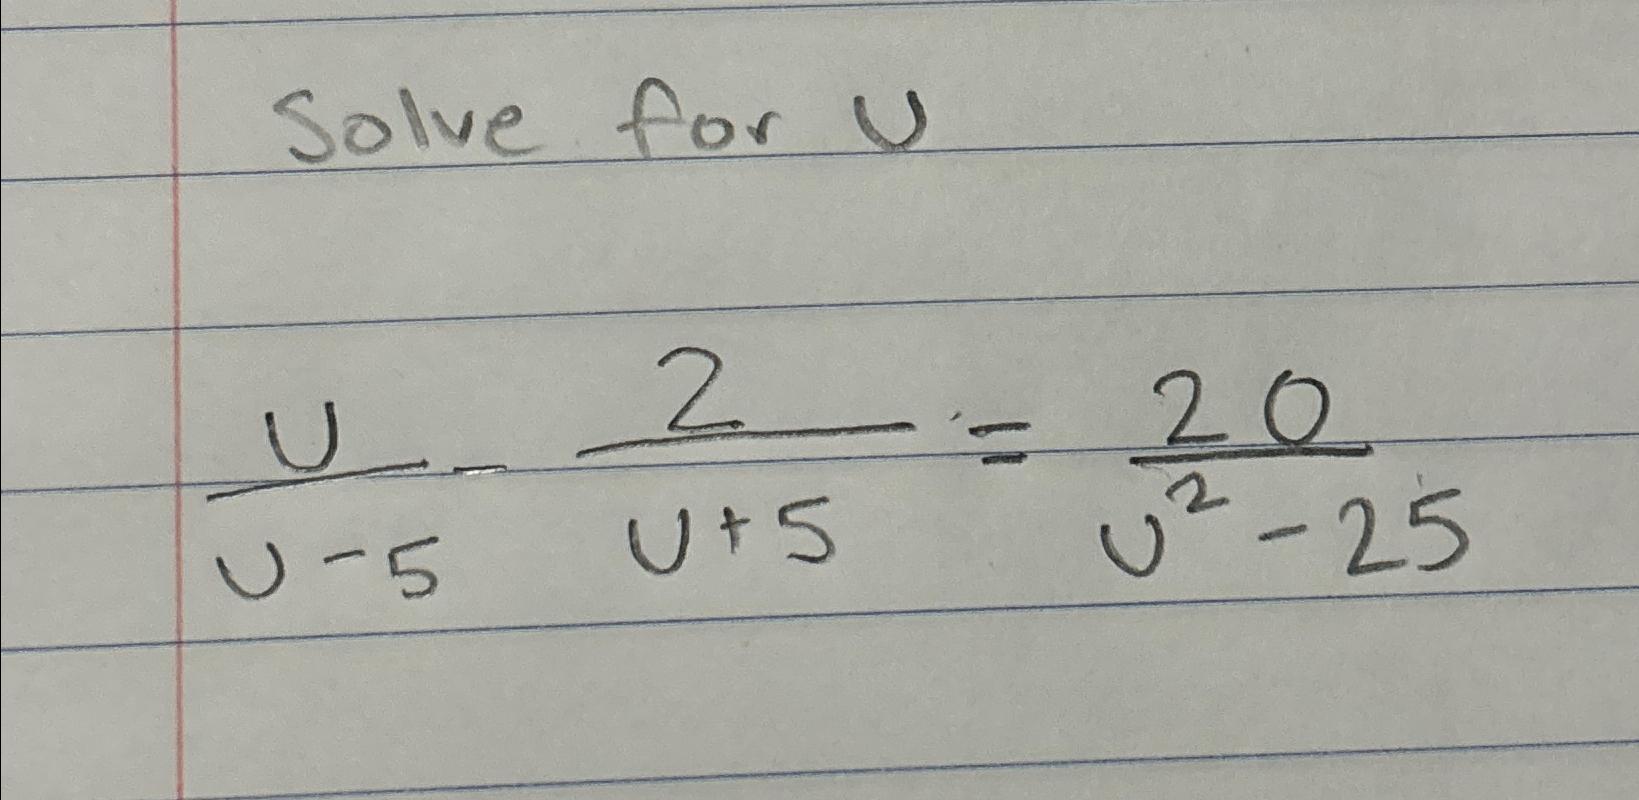 Solve for U
U/(U-5) - 2/(U+5) = 20/(U²-25)